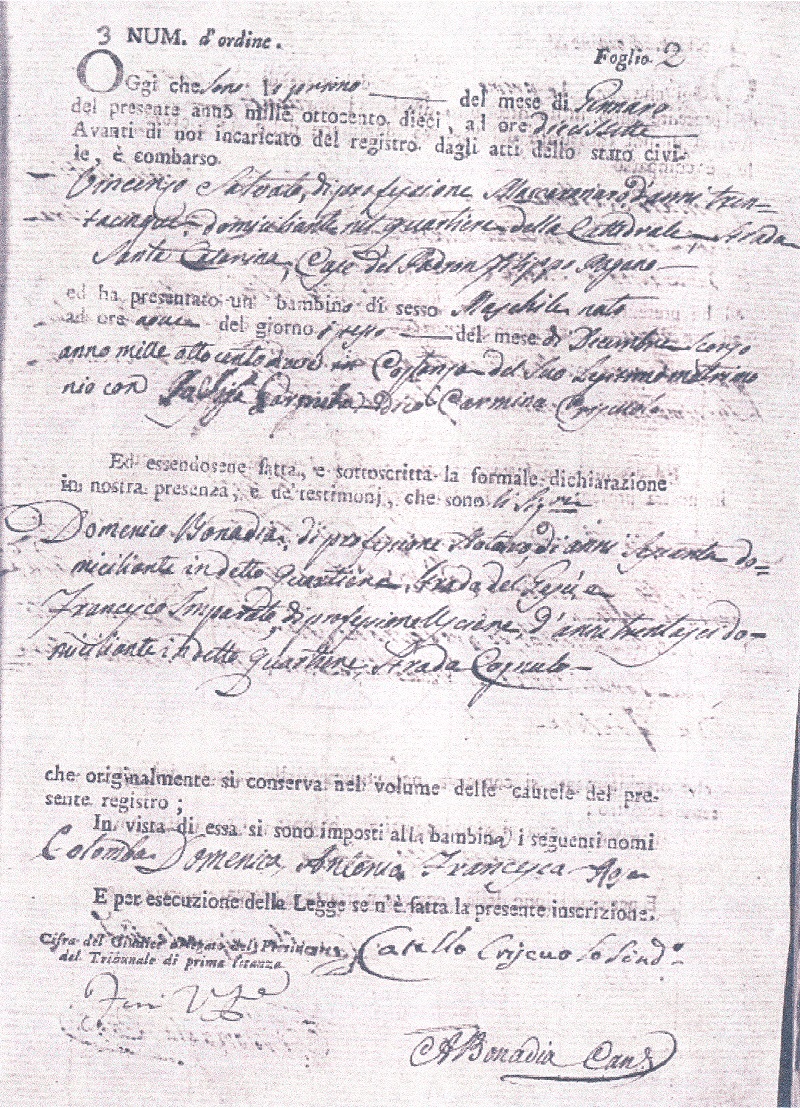 3 NUM. d'ordine.
Foglio 2
OGgi che sono lo primo del mese di Gennaro
del presente anno mille ottocento dieci, ad ore diecisette
Avanti di noi incaricato del registro dagli atti dello stato civi-
le, è combarso
Vincenzo Salvato, di professione d'anni tren-
tacinque domiciliante nel quartiere della Cattedrale, strada
Santa Catarina, Case del Padron Filippo Pagano
ed ha presentato un bambino di sesso Maschile nato
ad ora del giorno del mese di Dicembre scorso
anno mille ottocento nove in Costanza del suo legitimo matrimo
nio con Carmina Criscuolo
Ed essendosene fatta, e sottoscritta la formale dichiarazione
in nostra presenza, e de' testimonj, che sono li Sigri
Domenico Bonadia, di professione Notaro, di anni do=
miciliante in detto Quartiere, strada del Gesù e
Francesco Imparato, di professione d'anni trentasei do=
miciliante in detto Quartiere, strada Cognulo
che originalmente si conserva nel volume delle cautele del pre-
sente registro;
In vista di essa si sono imposti alla bambina i seguenti nomi
Colomba Domenica Antonia Francesca
E per esecuzione della Legge se n'è fatta la presente inscrizione.
Cifra del Giudice delegato del Presidente
del Tribunale di prima istanza
Catello Criscuolo Sind.o
ABonadia Canc